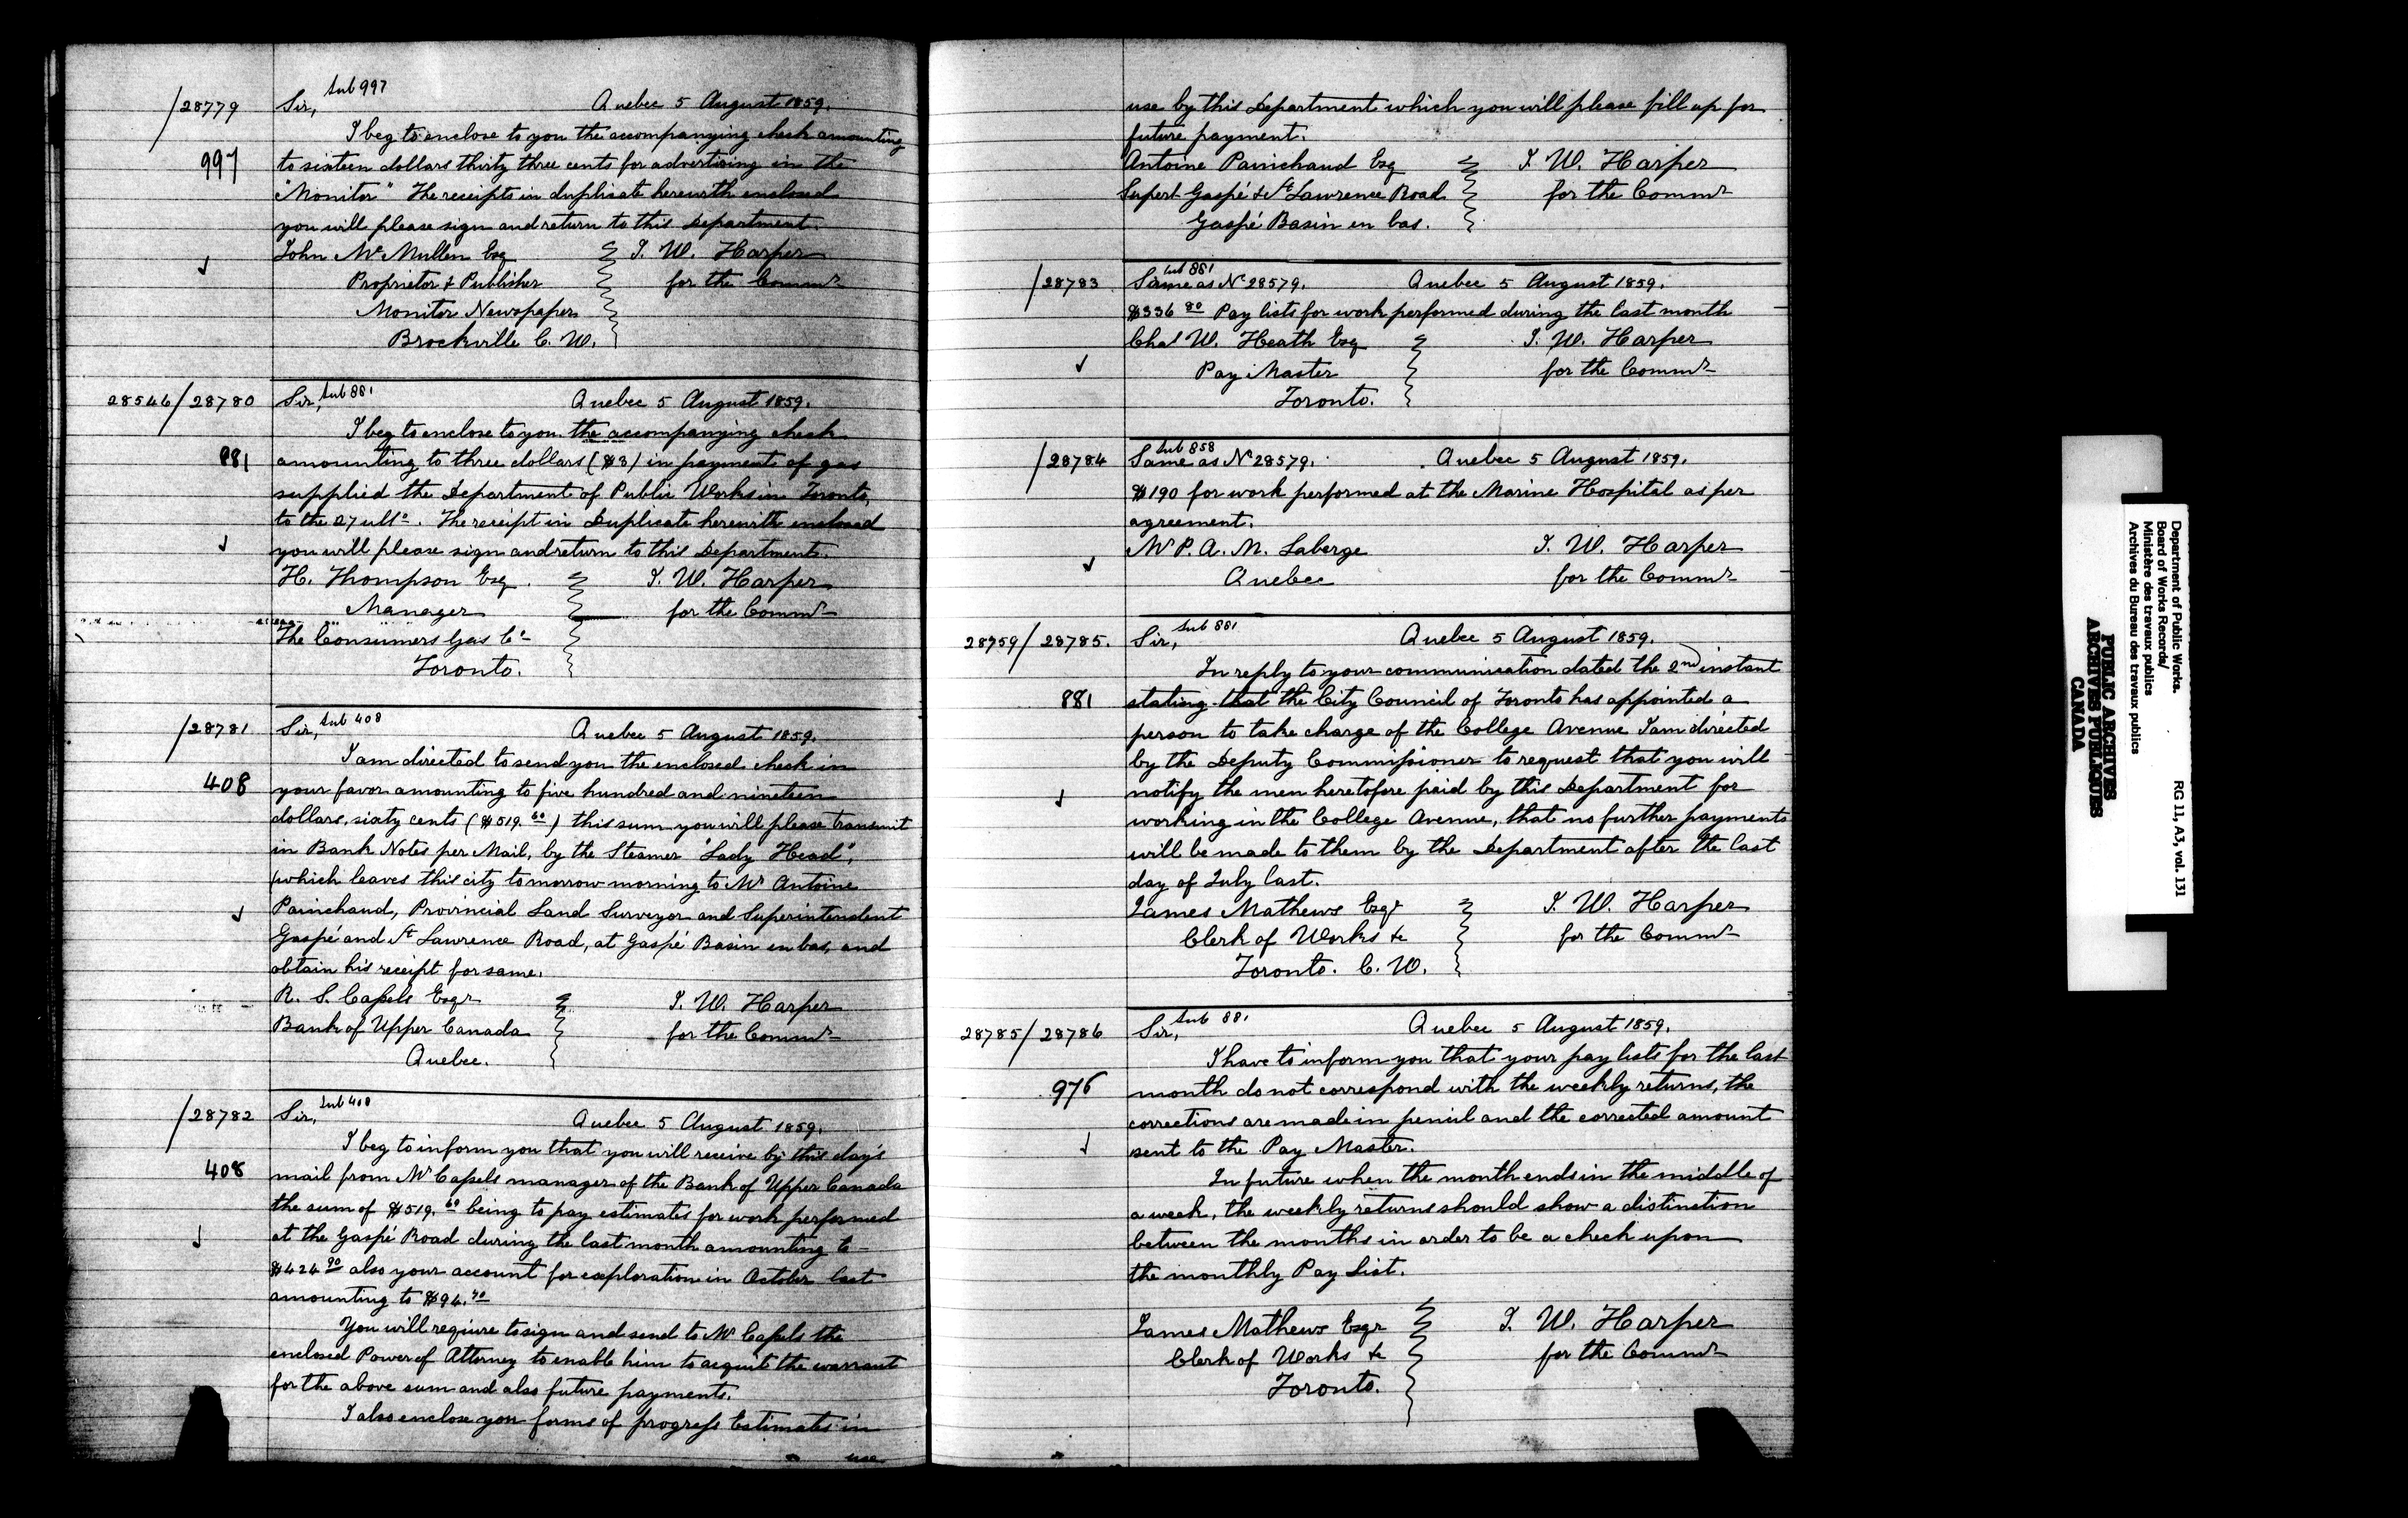 Sub 997
/28779 Sir, Quebec 5 August 1859.
I beg to enclose to you the accompanying check amounting
997 to sixteen dollars thirty three cents for advertising in the
"Monitor" The receipts in duplicate herewith enclosed
you will please sign and return to this Department.
John McMullen Esq J. W. Harper
Proprietor & Publisher for the Commr
Monitor Newspaper
Brockville C. W.
28546/28780 Sir, Sub 881 Quebec 5 August 1859.
I beg to enclose to you the accompanying check
881 amounting to three dollars ($3) in payment of gas
supplied the Department of Public Works in Toronto,
to the 27 ulto. The receipt in Duplicate herewith enclosed
you will please sign and return to this Department.
H. Thompson Esq. J. W. Harper
Manager for the Commr
The Consumers Gas Co
Toronto.
/28781 Sir, Sub 408 Quebec 5 August 1859.
I am directed to send you the enclosed check in
408 your favor amounting to five hundred and nineteen
dollars, sixty cents ($519.60) this sum you will please transmit
in Bank Notes per Mail, by the Steamer "Lady Head",
which leaves this city tomorrow morning to Mr Antoine
Painchaud, Provincial Land Surveyor and Superintendent
Gaspé and St Lawrence Road, at Gaspé Basin en bas, and
obtain his receipt for same.
R. S. Cassels Esqr J. W. Harper
Bank of Upper Canada for the Commr
Quebec.
/28782 Sir, Sub 408 Quebec 5 August 1859.
I beg to inform you that you will receive by this day's
408 mail from Mr Cassels manager of the Bank of Upper Canada
the sum of $519.60 being to pay estimates for work performed
at the Gaspé Road during the last month amounting to
$424 90 also your account for exploration in October last
amounting to $94.70
You will require to sign and send to Mr Cassels the
enclosed Power of Attorney to enable him to acquit the warrant
for the above sum and also future payments.
I also enclose you forms of progress Estimates in
use
use by this Department which you will please fill up for
future payment.
Antoine Painchaud Esq J. W. Harper
Supert Gaspé & St Lawrence Road for the Commr
Gaspé Basin en bas.
Sub 881
/28783 Same as No 28579. Quebec 5 August 1859.
$336 80 Pay lists for work performed during the last month
Chas W. Heath Esq J. W. Harper
Pay Master for the Commr
Toronto.
Sub 858
/28784 Same as No 28579. Quebec 5 August 1859.
$190 for work performed at the Marine Hospital as per
agreement.
Mr P. A. M. Laberge J. W. Harper
Quebec for the Commr
28759/28785. Sir, Sub 881 Quebec 5 August 1859.
In reply to your communication dated the 2nd instant
881 stating that the City Council of Toronto has appointed a
person to take charge of the College Avenue I am directed
by the Deputy Commissioner to request that you will
notify the men heretofore paid by this Department for
working in the College Avenue, that no further payments
will be made to them by the Department after the last
day of July last.
James Mathews Esqr J. W. Harper
Clerk of Works &c for the Commr
Toronto. C. W.
28785/28786 Sir, Sub 881 Quebec 5 August 1859.
I have to inform you that your pay lists for the last
976 month do not correspond with the weekly returns, the
corrections are made in pencil and the corrected amount
sent to the Pay Master.
In future when the month ends in the middle of
a week, the weekly returns should show a distinction
between the months in order to be a check upon
the monthly Pay List.
James Mathews Esqr J. W. Harper
Clerk of Works &c for the Commr
Toronto.
Department of Public Works.
Board of Works Records/
Ministère des travaux publics
Archives du Bureau des travaux publics
RG 11, A3, vol. 131
PUBLIC ARCHIVES
ARCHIVES PUBLIQUES
CANADA